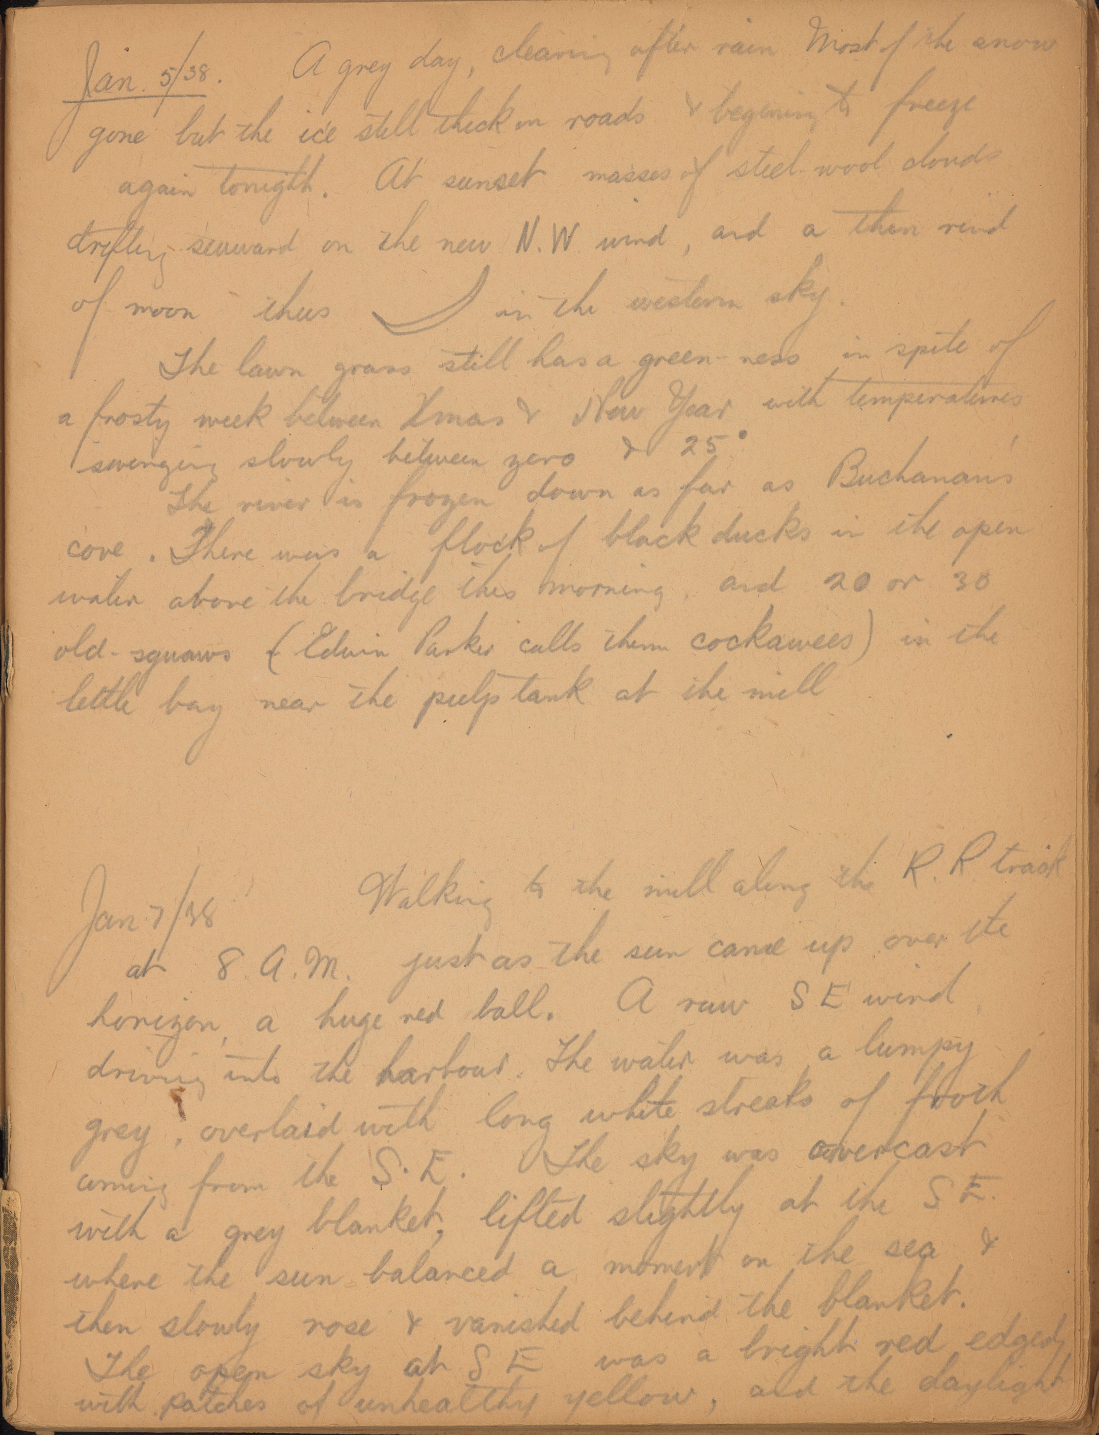 Jan. 5/38. A grey day, clearing after rain Most of the snow
gone but the ice still thick on roads & begening to freeze
again tonigth. At sunset masses of steel-wool clouds
drifting seaward on the new N.W. wind, and a thin rind
of moon thus in the western sky.
The lawn grass still has a green-ness in spite of
a frosty week between Xmas & New Year with temperatures
swinging slowly between zero & 25°
The river is frozen down as far as Buchanan's
cove. There was a flock of black ducks in the open
water above the bridge this morning, and 20 or 30
old-squaws (Edwin Parker calls them cockawees) in the
little bay near the pulp tank at the mill
Jan 7/38 Walking to the mill along the R.R. track
at 8 A.M. just as the sun came up over the
horizon, a huge red ball. A raw S E wind
driving into the harbour. The water was a lumpy
grey, overlaid with long white streaks of froth
coming from the S.E. The sky was overcast
with a grey blanket, lifted slightly at the S E.
where the sun balanced a moment on the sea &
then slowly rose & vanished behind the blanket.
The open sky at S E was a bright red edged
with patches of unhealthy yellow, and the daylight